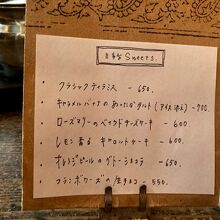 自家製 Sweets.
・ クラシックティラミス - 650.
・ キャラメルバナナのあったかタルト (アイス添え) - 700.
・ ローズマリーのベイクドチーズケーキ - 600.
・ レモン香る キャロットケーキ - 600.
・ オレンジピールのガトーショコラ - 650.
・ フランボワーズの生チョコ - 550.